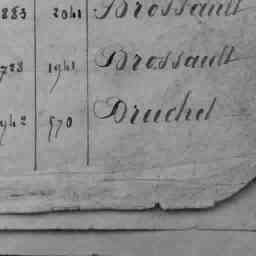 883 2041 Brossault
728 1941 Brossault
942 570 Bruchet